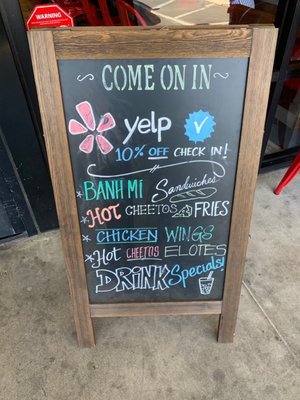 WARNING
COME ON IN
yelp
10% OFF CHECK IN!
BANH MI Sandwiches
HOT CHEETOS FRIES
CHICKEN WINGS
HOT CHEETOS ELOTES
DRINK Specials!